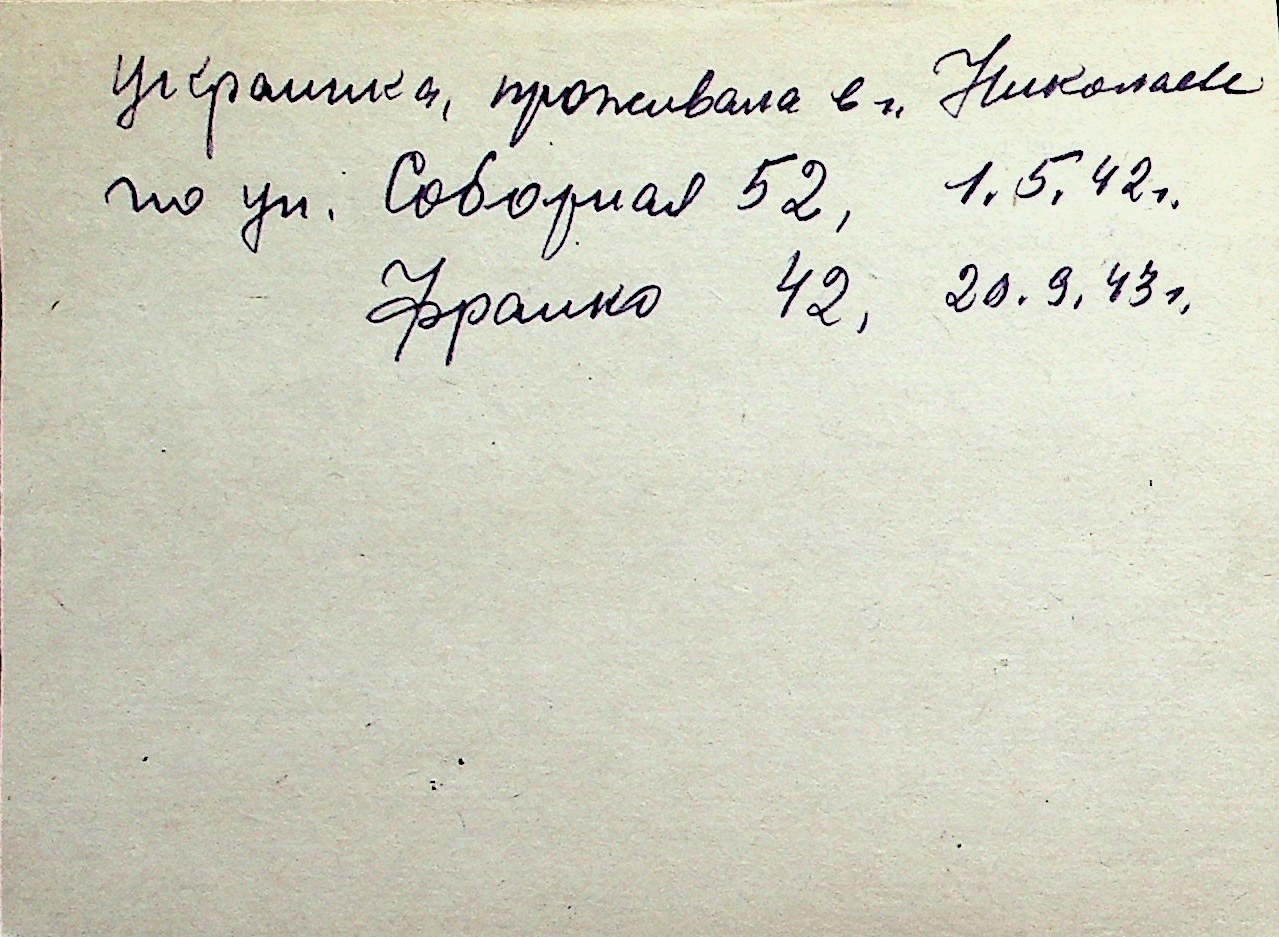 украинка, проживала в г. Николаеве
по ул. Соборная 52, 1.5.42г.
Франко 42, 20.9.43г.